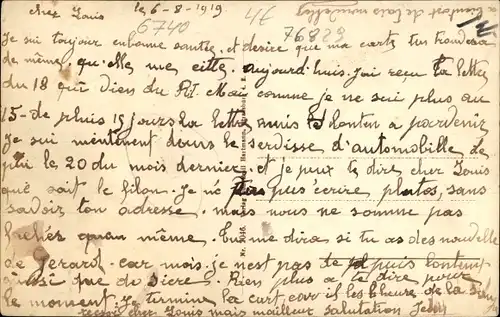 cher Louis le, 6-8-1919
6740 76829
Je sui toujour enbonne santée, et desire que ma carte tun trouvera
de même, qu'elle me citte. aujourd'huis. J'ai reçu la lettre
du 18 qui vien du Rt. Mai comme je ne sui plus au
15- de pluis 15 jours La lettre mis lonten a parvenir
Je sui mientenent dours le serdisse d'automobille de
plui le 20 du mois dernier, et je peux te dire cher Louis
que sait le filon. Je né pus écrire plutos, sans
savoir ton adresse. mais nous ne somme pas
fachés quan même. tu me dira si tu as des nouvelle
de Gerard. car moi. je n'est pas de puis lontemp
ausi pas de dicre. Rien plus a te dire pour
le moment. Je termine la cart, car il les l'heure de la
cher Louis mais meilleur salutation